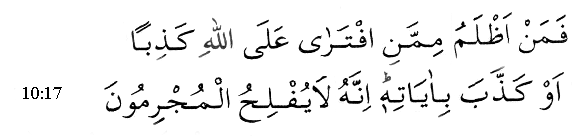 فَمَنْ اَظْلَمُ مِمَّنِ افْتَرٰى عَلَى اللّٰهِ كَذِبًا
اَوْ كَذَّبَ بِاٰيَاتِهٖۜ اِنَّهُ لَايُفْلِحُ الْمُجْرِمُونَ 10:17